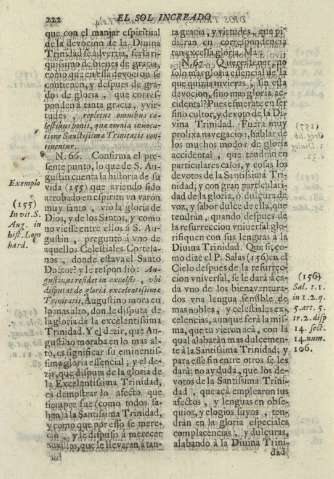 222 EL SOL INCREADO
que con el manjar espiritual
de la devocion de la Divina
Trinidad se advertia, seria ri-
quissimo de bienes de gracia,
como que en essa devocion se
contienen, y despues de gra-
dos de gloria, que corres-
ponden à tanta gracia, y vir-
tudes, repletus omnibus cæ-
lestibus bonis, quæ omnia invoca-
tione Sanctissimæ Trinitatis con-
tinentur.
N. 66. Confirma el pre-
sente punto, lo que de S. Au-
gustin cuenta la historia de su
vida (155) que aviendo sido
arrobado en espiritu un varon
muy santo, viò la gloria de
Dios, y de los Santos, y como
no viesse entre ellos à S. Au-
gustin, preguntò à uno de
aquellos Celestiales Cortesa-
nos, donde estava el Santo
Doctor? y le respondiò: Au-
gustinus residet in excelsis, ubi
disputat de gloria excellentissimæ
Trinitatis. Augustino mora en
lo mas alto, donde disputa de
la gloria de la excelentissima
Trinidad. Y el dezir, que Au-
gustino mora en lo mas al-
to, es significar su eminentis-
sima gloria essencial, y el de-
zir, que disputa de la gloria de
la Excelentissima Trinidad,
es demostrar lo afecto que
siempre fue (como todos sa-
ben) à la Santissima Trinidad,
y como que por esso se mere-
ciò, y le dispuso à merecer
auxilios, que le llevaran à tan-
ta gracia, y virtudes, que pi-
dieran en correspondencia
tan excessa gloria. Mas
N. 67. Que eres tener, no
solo mas gloria essencial de la
que quizàs tuvieras, sin essa
devocion, sino mas gloria ac-
cidental? Pues esmerate en ser
fino cultor, y devoto de la Di-
vina Trinidad. Fuera muy
prolixa navegacion, hablar de
los muchos modos de gloria
accidental, que tendràn en
particulares casos, y cosas los
devotos de la Santissima Tri-
nidad, y con gran particulari-
dad de la gloria, ò dulçura de
voz, y sabor dulce de ella, que
tendràn, quando despues de
la resurreccion universal glo-
rifiquen con sus lenguas à la
Divina Trinidad. Que si co-
mo dize el P. Salas (156) en el
Cielo despues de la resurrec-
cion universal, se le darà à ca-
da uno de los bienaventura-
dos una lengua sensible de
mas nobles, y celestiales ex-
celencias, aunque serà la mis-
ma, que tuvieron acà, con la
qual alabaràn mas dulcemen-
te à la Santissima Trinidad; y
para esse fin entre otros se les
darà: no ay duda, que los de-
votos de la Santissima Trini-
dad, que acà emplearon sus
afectos, y lenguas en obse-
quios, y elogios suyos, ten-
dràn en la gloria especiales
complacencias, y dulçuras,
alabando à la Divina Trini-
dad
Exemplo
(155)
In vit. S.
Aug. in
hist. Lom
bard.
(156)
Sal. t. 1.
in 1. 2. q.
5. art. 5.
tr. 2. disp
14. sect.
14. num.
106.